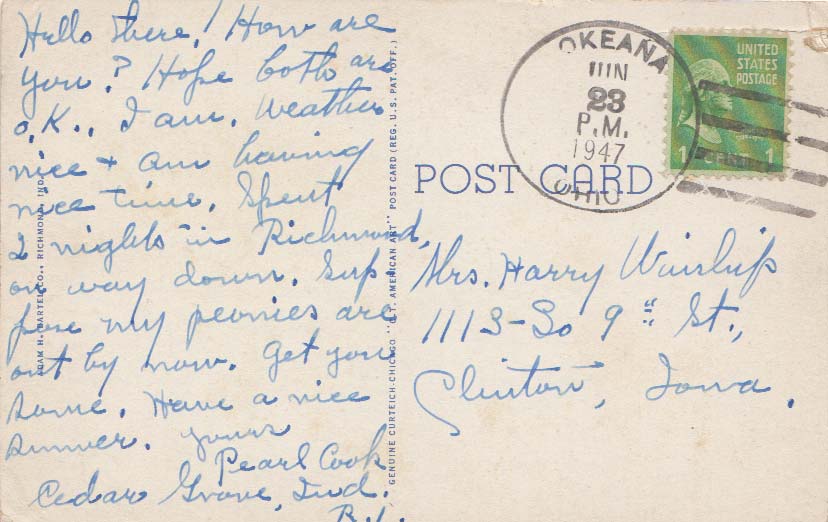 Hello there! How are
you? Hope both are
o.K., I am. Weather
nice + am having
nice time. Spent
2 nights in Richmond,
on way down. Sup
pose my peonies are
out by now. Get you
some. Have a nice
summer. yours
Pearl Cook
Cedar Grove, Ind.
R.1.
ADAM H. BARTEL CO., RICHMOND, IND.
GENUINE CURTEICH-CHICAGO "C.T. AMERICAN ART" POST CARD (REG. U.S. PAT. OFF.)
OKEANA
JUN
23
P.M.
1947
OHIO
UNITED
STATES
POSTAGE
1 CENT 1
POST CARD
Mrs. Harry Winship
1113-So 9th St.,
Clinton, Iowa.